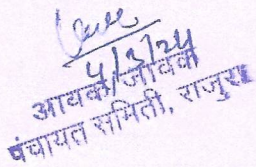 4/3/24
आवक/जावक
पंचायत समिती, राजुरा